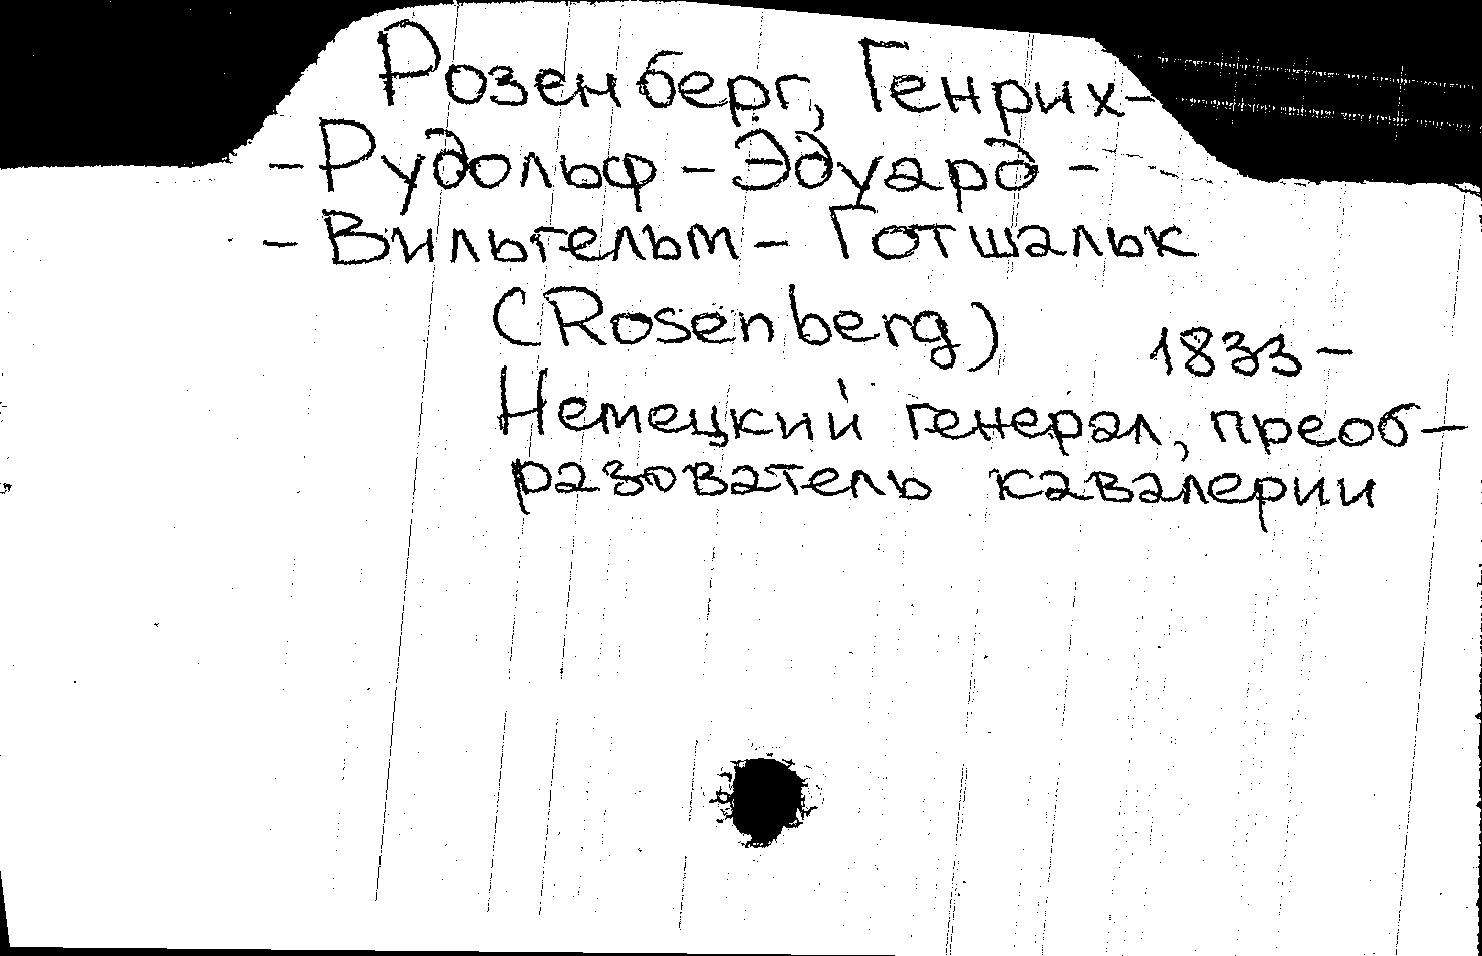 Розенберг, Генрих-
-Рудольф-Эдуард-
-Вильгельм-Готшальк
(Rosenberg)
1833-
Немецкий генерал, преоб-
разователь кавалерии